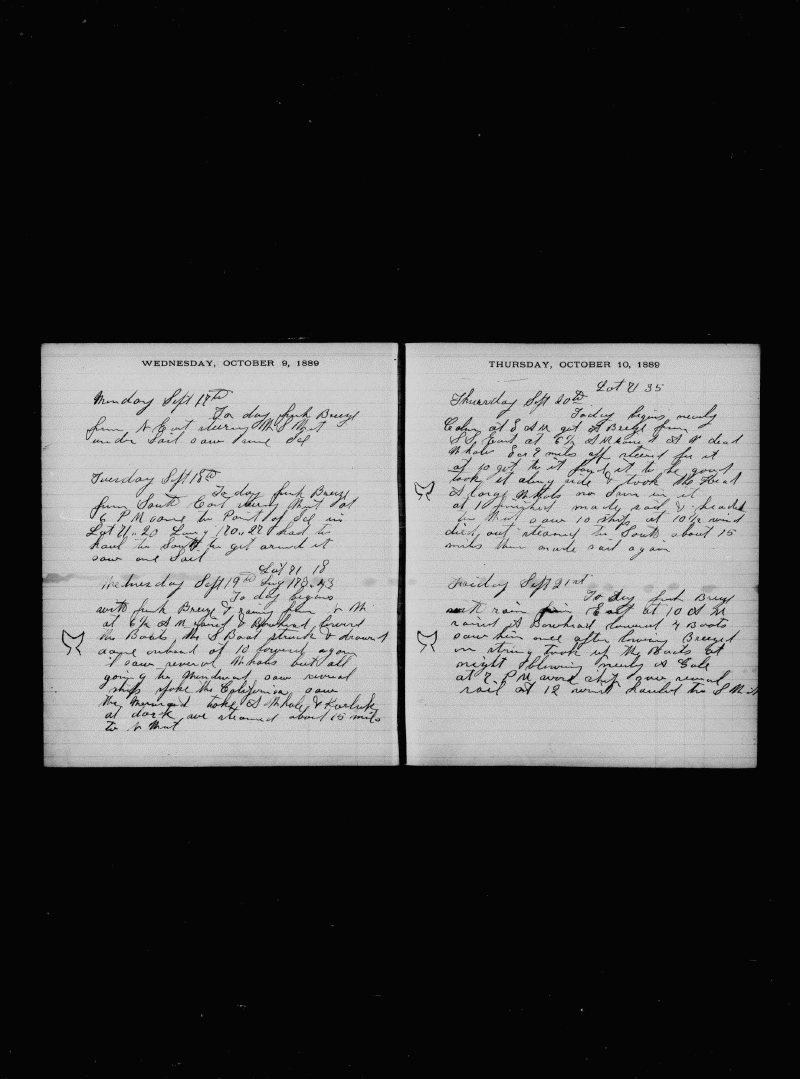 WEDNESDAY, OCTOBER 9, 1889
Monday Sept 17th
To day fresh Breeze
from N East steering W S West
under Sail saw some
Tuesday Sept 18th
To day fresh Breeze
from South East steering West at
6 P M came to Point of in
Lat 71..20 Long 170..27 had to
haul to South to get around it
saw one Sail
Lat 71 18
Wednesday Sept 19th Long 173.43
To day begins
with fresh Breeze & rainy from N W
at 6½ A M raised A Bowhead lowered
the Boats the S Boat struck & drawed
came onboard at 10 lowered again
saw several Whales but all
going to Windward saw several
ships spoke the California saw
the took A Whale & Karluk
at dark we steamed about 15 miles
to N West
THURSDAY, OCTOBER 10, 1889
Lat 71 35
Thursday Sept 20th
Today begins nearly
Calm at 8 A M got A Breeze from
S S East at 6½ A M raised A dead
Whale 5 or 8 miles off steered for it
at 10 got to it found it to be good
took it along side & took the Head
A large Whale no Iron in it
at 1 finished made sail & headed
to West saw 10 ships at 10½ wind
died out steamed to South about 15
miles then made sail again
Friday Sept 21st
To day fresh Breeze
with rain from East at 10 A M
raised A Bowhead lowered 4 Boats
saw him once after lowing Breezed
on strong took up the Boats at
night blowing nearly A Gale
at 7. P M wore ship saw several
sail at 12 hauled to S W